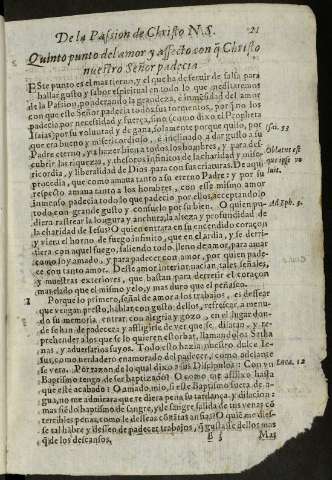 De la Passion de Christo N.S. 21
Quinto punto del amor y affecto con q̃ Christo
nuestro Señor padecia
ESte punto es el mas tierno, y el que ha de seruir de salsa para
hallar gusto y sabor espiritual en todo lo que meditaremos
de la Passion, ponderando la grandeza, è inmẽsidad del amor
con que este Señor padecia todos sus tormentos, porq̃ no los
padecia por necessidad y fuerça, sino (como dixo el Propheta
Isaias) por su voluntad y de gana, solamente porque quiso, por
que era bueno y misericordioso, è inclinado a dar gusto a su
Padre eterno, y a hazer bien a todos los hombres, y para des-
cubrir las riquezas, y thesoros infinitos de la charidad y mise-
ricordia, y liberalidad de Dios para con sus criaturas. De aqui
procedia, que como amaua tanto a su eterno Padre: y por su
respecto amaua tanto a los hombres, con este mismo amor
inmẽso padecia todo lo que padecio por ellos, aceptandolo
todo con grande gusto y consuelo por su bien. O quien pu-
diera rastrear la longura y anchura, la alteza y profundidad de
la charidad de Iesus? O quien entrara en su encendido coraçon
y viera el horno de fuego infinito, que en el ardia, y se derri-
tiera con aquel fuego, saliendo todo lleno de amor, para amar
como soy amado, y para padecer con amor, por quien pade-
ce con tanto amor. Deste amor interior nacian tales señales,
y muestras exteriores, que bastan para derretir el coraçon
mas elado que el mismo yelo, y mas duro que el peñasco.
1 Porque lo primero, señal de amor a los trabajos, es dessear
que vengan presto, hablar con gusto dellos, refrescar a menu-
do su memoria, entrar con alegria y gozo, en el lugar don-
de se han de padecer, y affligirse de ver que se dilatan, y re-
prehender a los que se lo quieren estorbar, llamandolos Satha
nas, y aduersarios suyos. Todo esto hazia nuestro dulce Ie-
sus, como se vera. Por razon de lo qual dixo a sus Discipulos: Con vn
Baptismo tengo de ser baptizado? O como me afflixo hasta
que este acabado? O amado mio, si este Baptismo fuera de a-
gua, no me admirara que te diera pena su tardança, y dilacion:
mas siẽdo baptismo de sangre, y de sangre salida de tus venas cõ
terribles penas, como le desseas cõ tãtas ansias? O quiẽ me dies-
se tal hãbre y desseo de padecer trabajos, q̃ gustasse dellos mas
q̃ de los descansos.
B 5 Mas
Isai. 53
Oblatus est
quia ipse vo
luit.
Ad Eph. 3.
Luca. 12